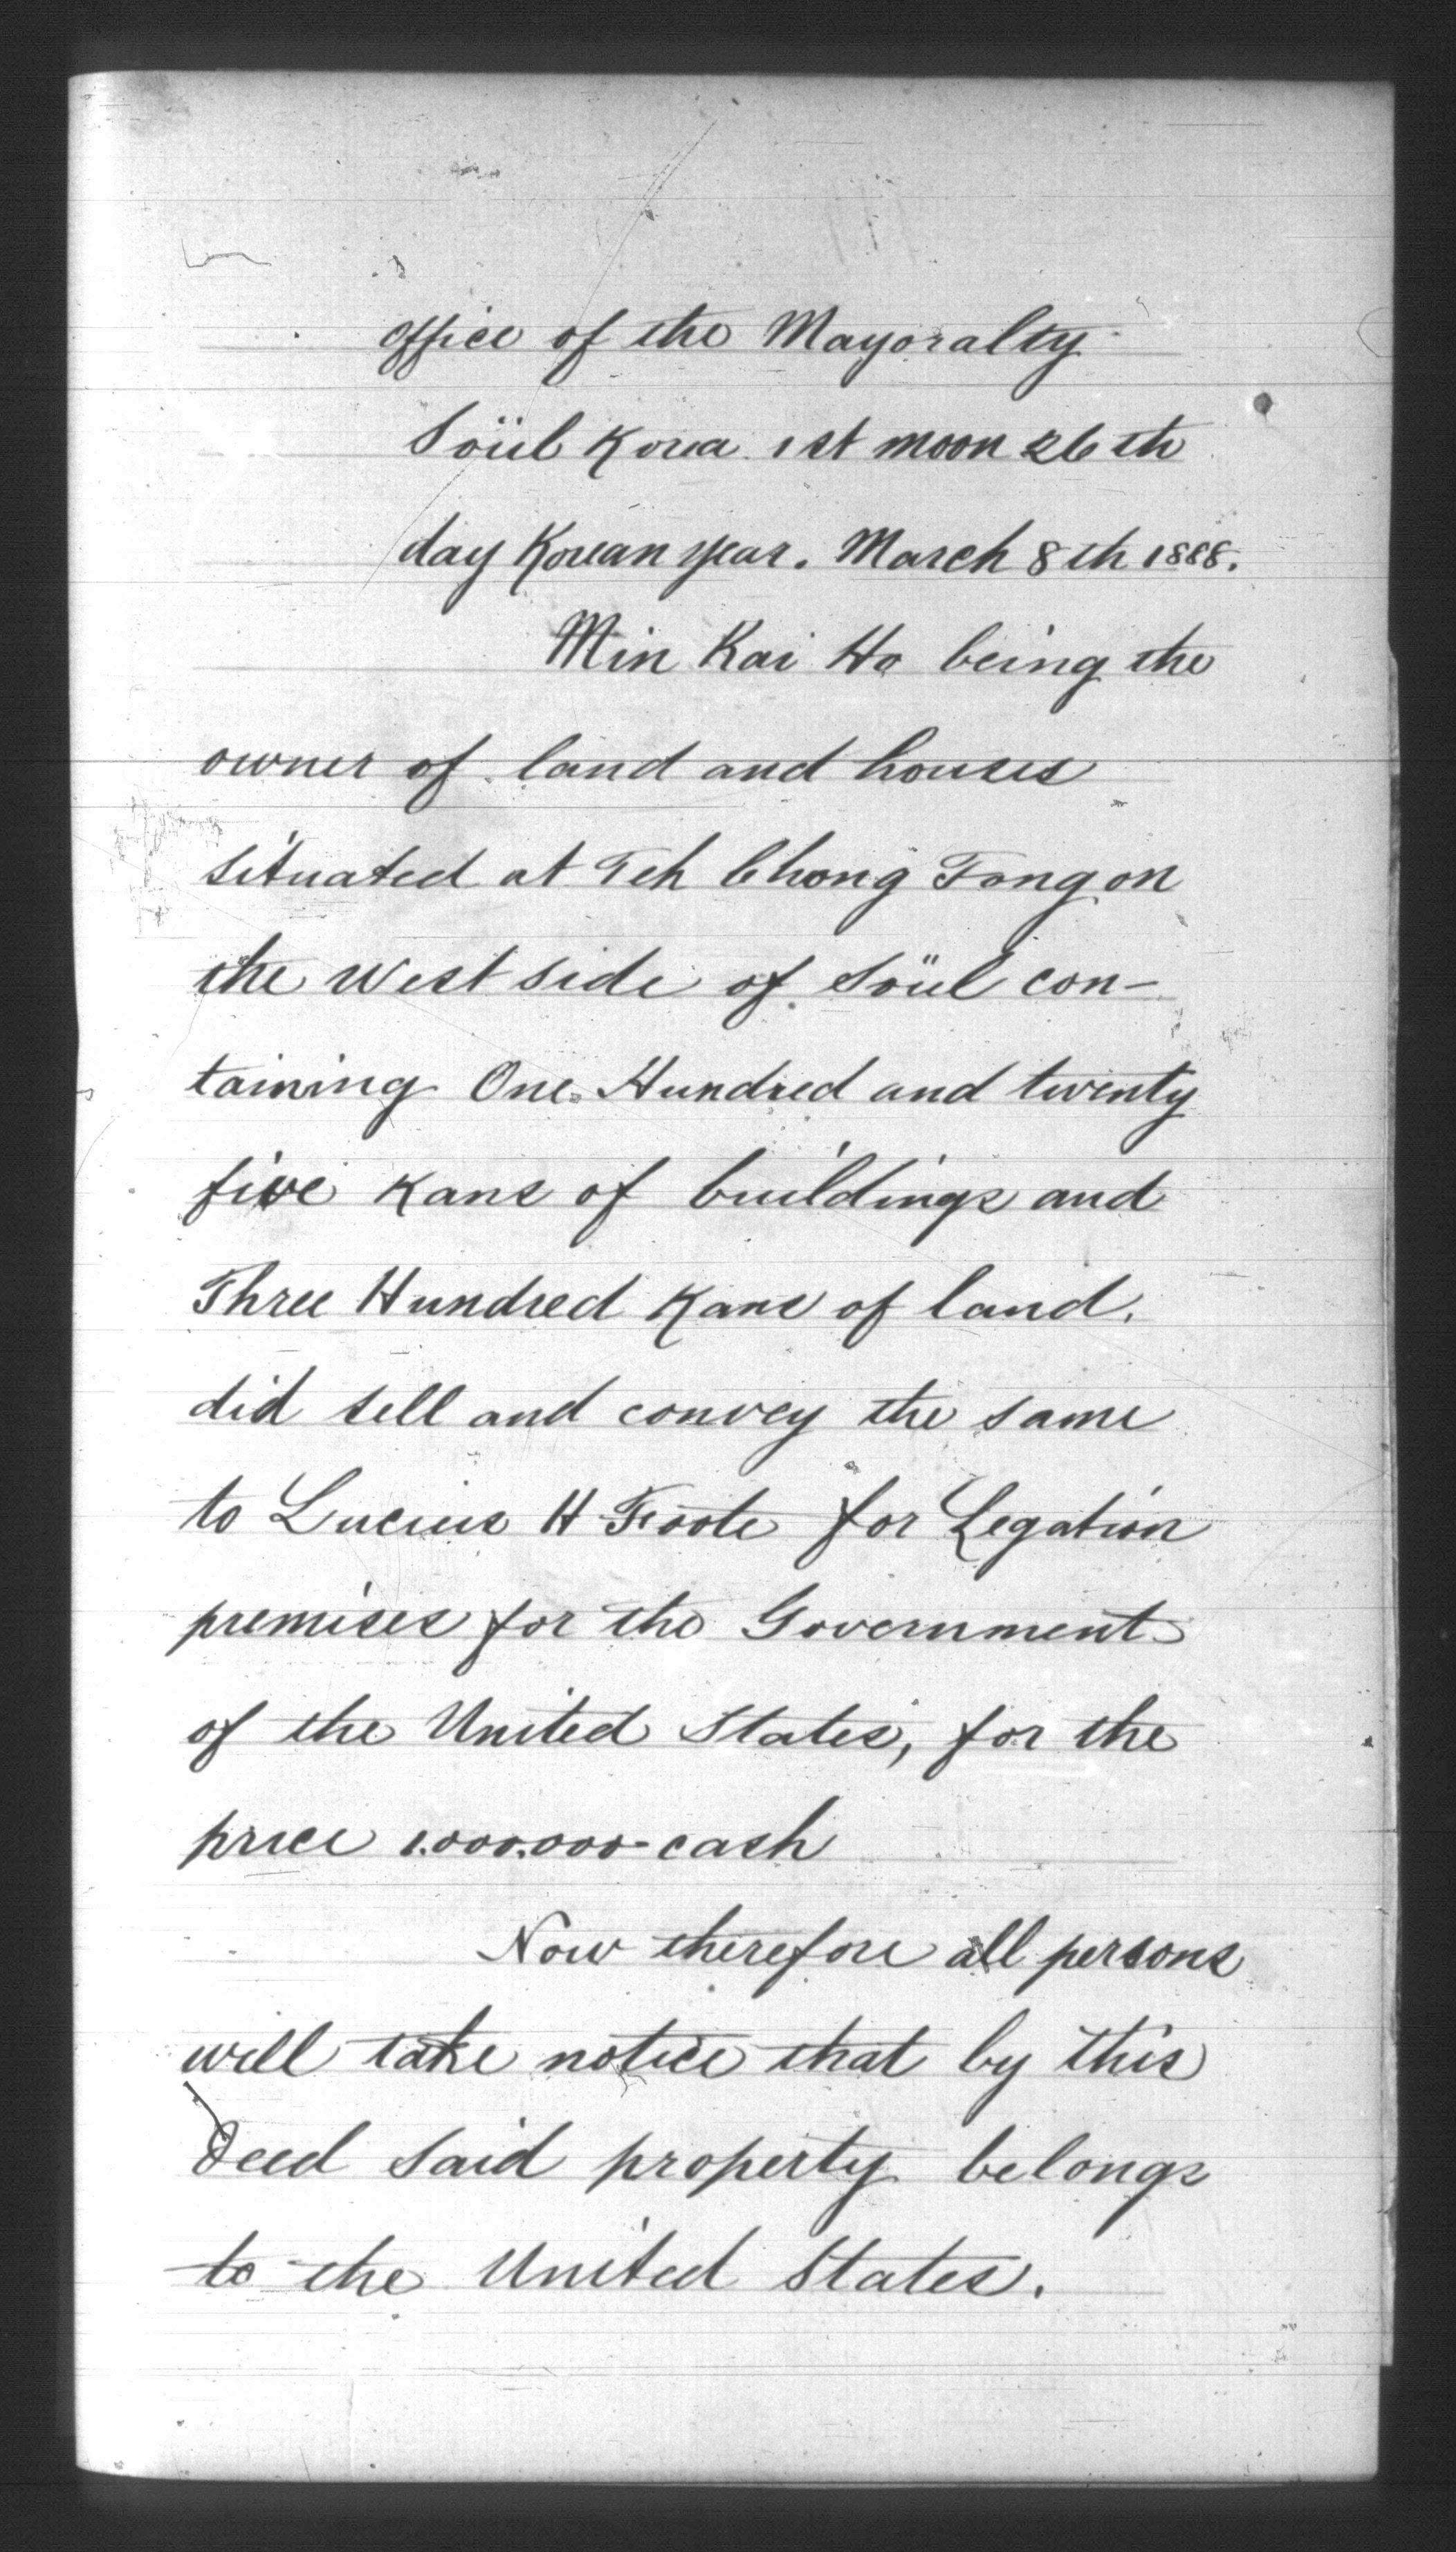 Office of the Mayoralty
Söül Korea. 1st moon 26th
day Korean year. March 8th 1888.
Min Kai Ho being the
owner of land and houses
situated at Teh Chong Tong on
the West side of Söül con-
taining One Hundred and twenty
five Kans of buildings and
Three Hundred Kans of land.
did sell and convey the same
to Lucius H Foote for Legation
premises for the Government
of the United States, for the
price 1.000.000- cash
Now therefore all persons
will take notice that by this
Deed said property belongs
to the United States.